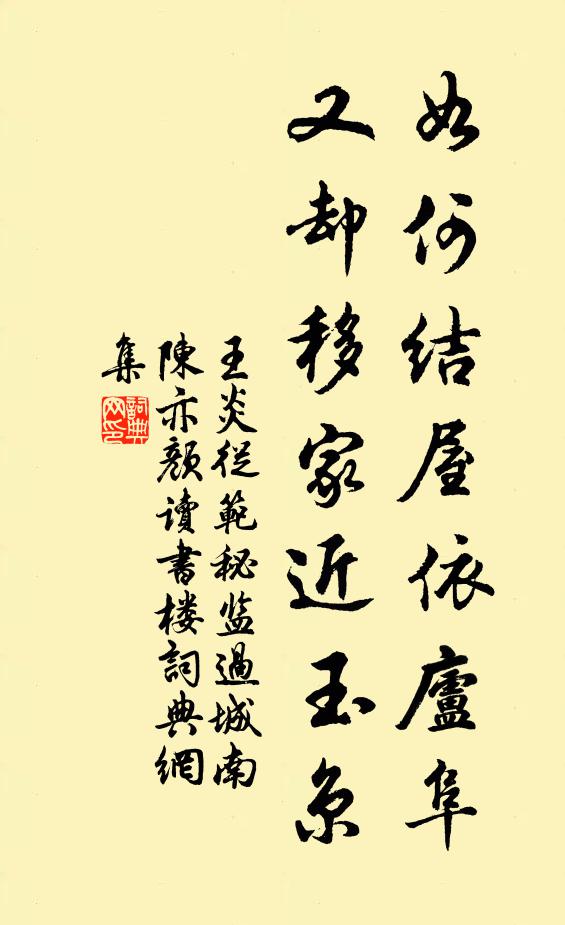 如何结屋依廬阜
又却移家近玉京
王炎從範秘监過城南
陳亦顏讀書楼詞典網
集
詞典
网印